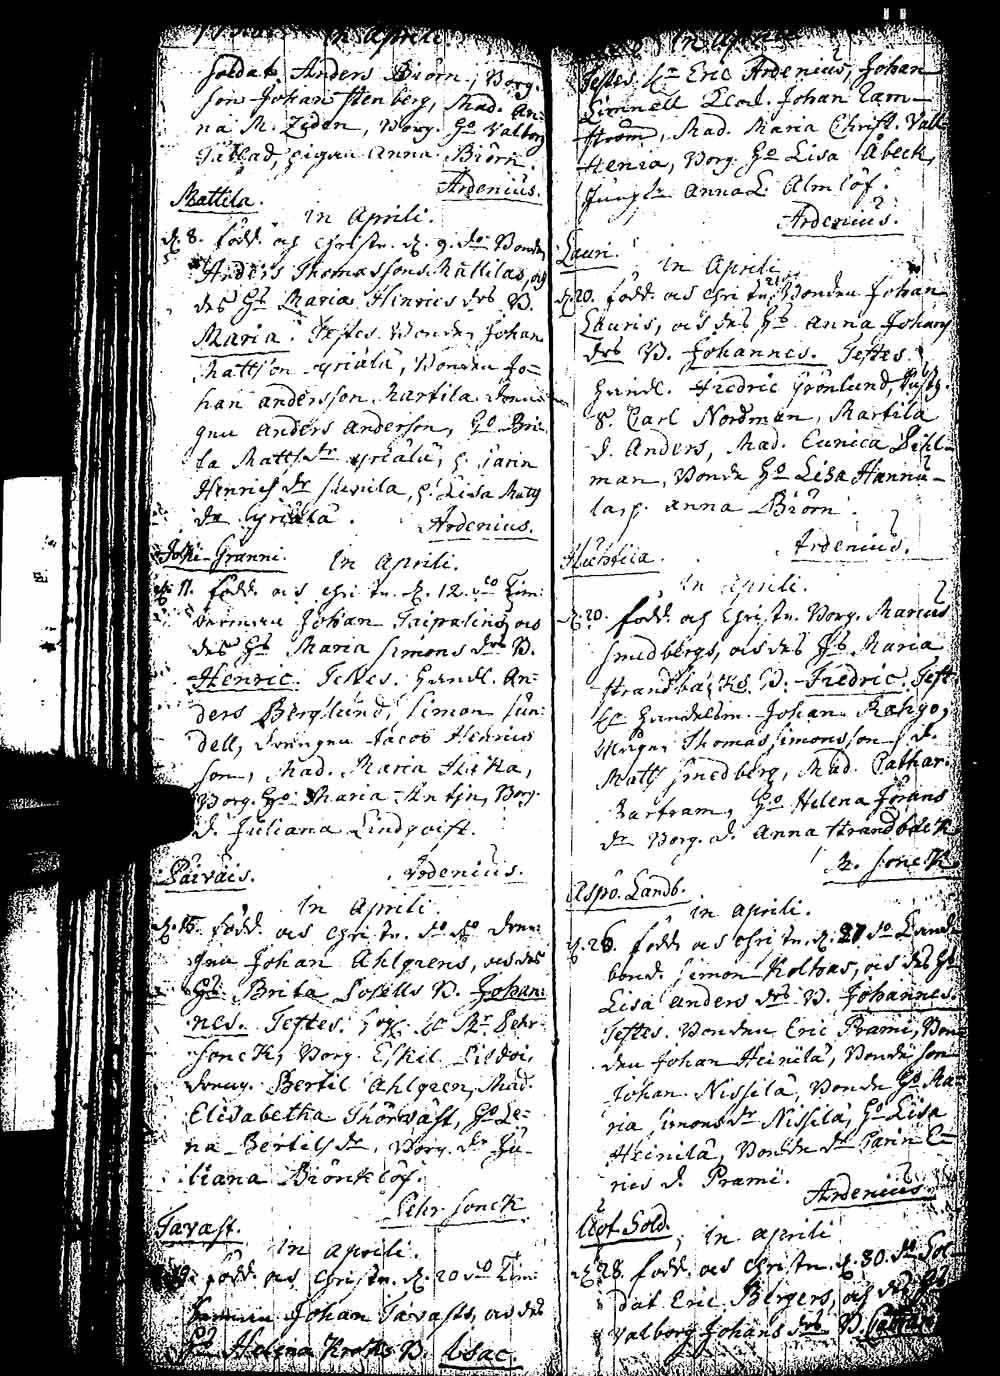 In Aprili.
Soldat. Anders Biörn, Borg.
son Johan Stenberg, Mad. An-
na M. Ziden, Borg. Ho Valborg
pigan Anna Biörn.
Ardenius.
Mattila.
in Aprili.
d. 8. född och Christn. d. 9. do Bonden
Anders Thomassons Mattilas, och
des Hs Maria Hinrics drs B.
Maria. Testes. Bonden Johan
Mattson Yriälä, Bonden Jo-
han andersson Martila Dren-
gen Anders Anderson, Ho Bri-
ta Matts dr Yriälä, p. Carin
Henrichs dr p. Lisa Matts
dr Yriälä. Ardenius.
Joki-Granni. In Aprili.
d. 11. född. och Christn. d. 12. do Tim-
berman Johan Taipalins, och
des Hs Maria Simons drs B.
Henric. Testes. Handl. An-
ders Berglund, Simon Sun-
dell, Drengen Jacob Henrics
son, Mad. Maria
Borg. Ho Maria Borg.
d. Juliana Lindqvist.
Päiväis. Ardenius.
In Aprili.
d. 15. född. och Christn. do do Dren-
gen Johan Ahlgrens, och des
Hs. Brita Losells B. Johan-
nes. Testes. Hr Pehr
Sonck, Borg. Eskil
Dreng. Bertil Ahlgren, Mad.
Elisabetha Thorwast, Ho Le-
na Bertils dr, Borg. dr Ju-
liana Biörklöf.
Pehr Sonck
Tavast.
in Aprili.
19. född. och Christn. d. 20 do Tim-
berman Johan Tavasts, och des
Hs Helena Kroks B. Isac.
In Aprili
Testes. Eric Ardenius, Johan
Limnell Johan Cam-
ström, Mad. Maria Christ. Vall-
stenia, Borg. Ho Lisa Åbeck,
Jungfr Anna L. Almlöf.
Ardenius.
Lauri.
in Aprili
d. 20. född. och Christn. 21 Bonden Johan
Lauris, och des Hs. Anna Johans
drs B. Johannes. Testes.
Handl. Fredric Grönlund,
Carl Nordman, Martila
d. Anders, Mad. Eunica Dihl-
man, Bonde Ho Lisa Hannu-
la, p. Anna Biörn.
Ardenius.
in Aprili.
d. 20. född och Christn. Borg. Marcus
Smedbergs, och des Hs. Maria
Strandbäcks B. Fredric. Test.
Handelsm. Johan Rango,
Thomas Simonsson, d.
Matts Smedberg, Mad. Cathar.
Bartram, Ho Helena Jörans
dr Borg. d. Anna Strandbäck.
P. Sonck
Aspö. Landb.
in Aprili.
d. 26. född. och Christn. d. 27 do Land-
bond. Simon Kolhas, och des Hs
Lisa Anders drs B. Johannes.
Testes. Bonden Eric Prami, Bon-
den Johan Heinilä, Bonde son
Johan Nissilä, Bonde Ho Ma-
ria Simons dr Nissilä, Ho Lisa
Heinilä, Bonde dr Carin E-
rics d. Prami.
Ardenius.
Uof. Sold.
in Aprili
d. 28. född. och Christn. d. 30. do Sol-
dat Eric Bergers, och des Hs
Valborg Johans drs B.